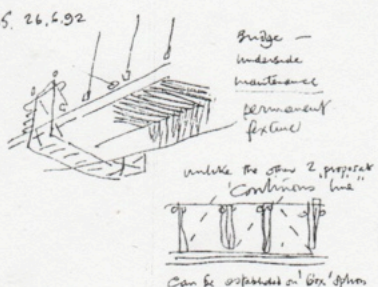 5. 26.6.92
Bridge –
underside
maintenance
permanent
fixture
unlike the other 2 proposals
"Continious line"
Can be established on 'box'